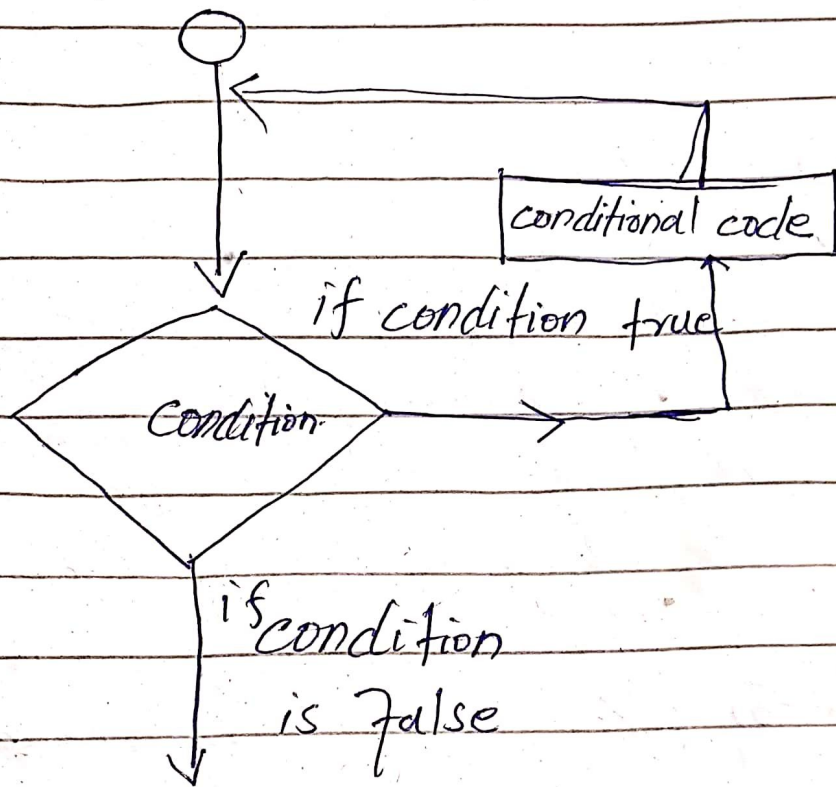 conditional code
if condition true
Condition
if condition
is False